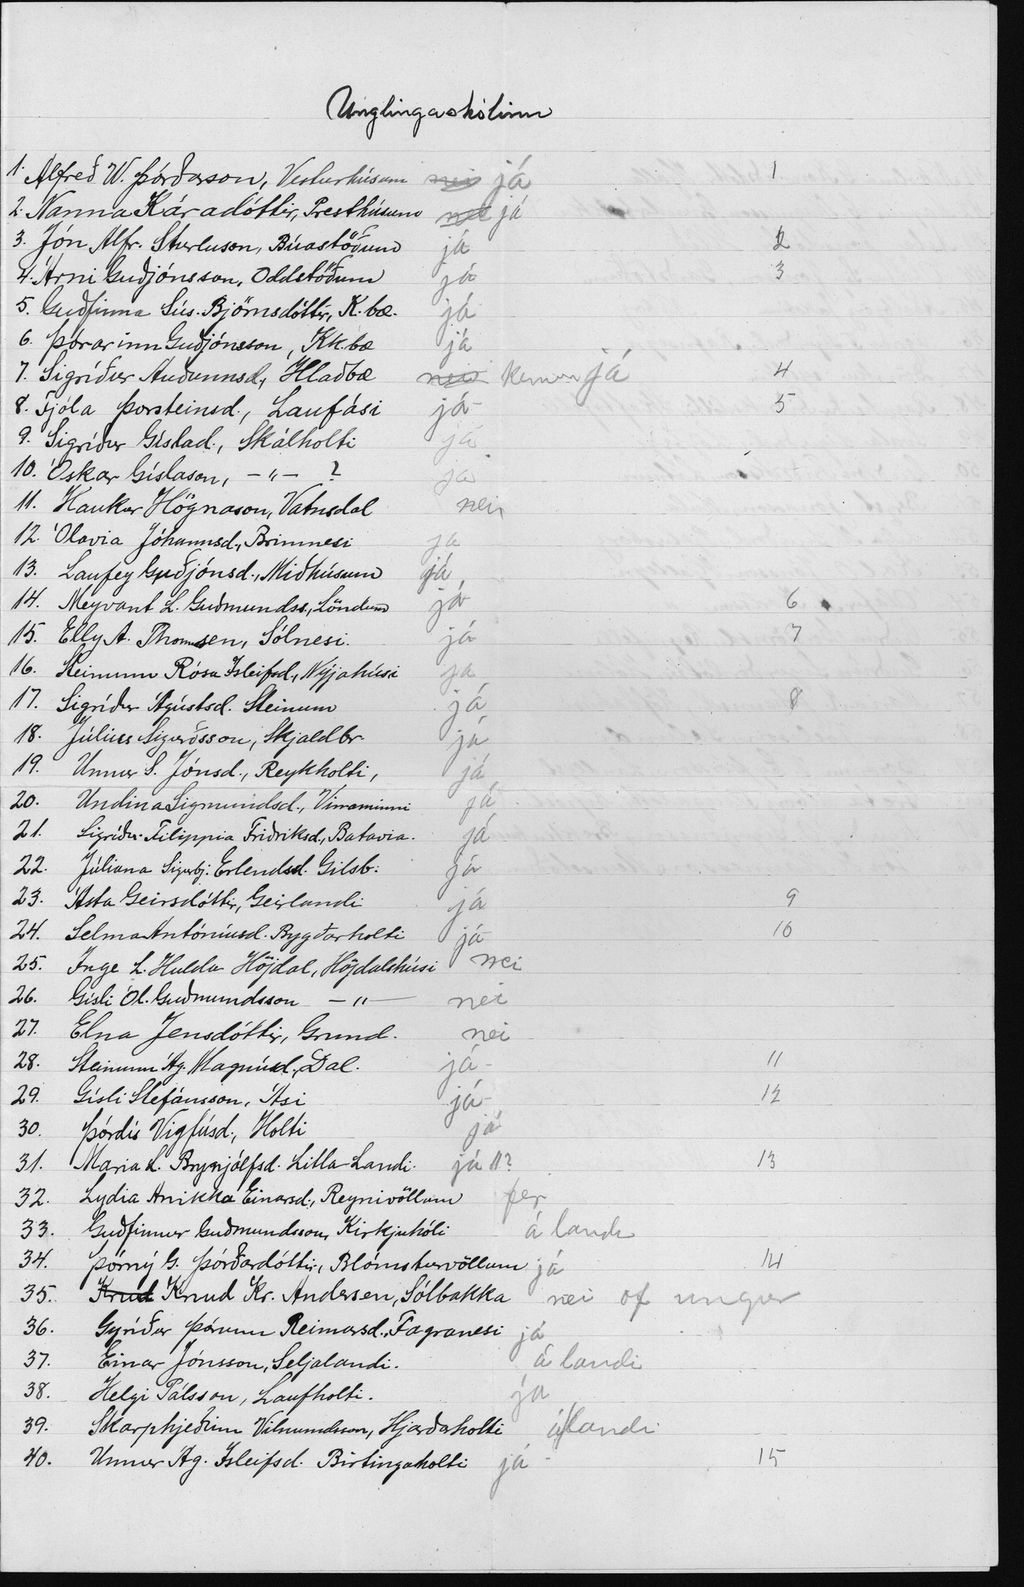 Unglingaskólinn
1. Alfreð W. Þórðarson, Vesturhúsum nei já 1
2. Nanna Káradóttir, Presthúsum nei já
3. Jón Alfr. Sturluson, Búastöðum já 2
4. Árni Guðjónsson, Oddstöðum já 3
5. Guðfinna Sús. Björnsdóttir, K.bæ. já
6. Þórarinn Guðjónsson, Kk.bæ já
7. Sigríður Auðunnsd., Hlaðbæ nei kemur já 4
8. Fjóla Þorsteinsd., Laufási já 5
9. Sigríður Gíslad., Skálholti já
10. Óskar Gíslason, -"- ? já
11. Haukur Högnason, Vatnsdal nei
12. Ólavia Jóhannsd., Brimnesi ja
13. Laufey Guðjónsd., Miðhúsum já
14. Meyvant L. Guðmundss., Löndum já 6
15. Elly A. Thomsen, Sólnesi. já 7
16. Steinunn Rósa Ísleifsd., Nýjahúsi ja
17. Sigríður Ágústsd. Steinum já 8
18. Júlíus Sigurðsson, Skjaldbr. já
19. Unnur S. Jónsd., Reykholti, já
20. Undína Sigmundsd., Vinaminni já
21. Sigríður Filippia Friðriksd., Batavia. já
22. Júliana Sigurbj. Erlendsd. Gilsb. já
23. Ásta Geirsdóttir, Geirlandi já 9
24. Selma Antóníusd. Bygðarholti já 10
25. Inge L. Hulda Höjdal, Höjdalshúsi nei
26. Gísli Ól. Guðmundsson -"- nei
27. Elna Jensdóttir, Grund. nei
28. Steinunn Ág. Magnúsd., Dal. já 11
29. Gísli Stefánsson, Ási já 12
30. Þórdís Vigfúsd., Holti já
31. María L. Brynjólfsd. Litla-Landi. já ? 13
32. Lydia Anikka Einarsd., Reynivöllum fer
33. Guðfinnur Guðmundsson, Kirkjuhóli á landi
34. Þórný G. Þórðardóttir, Blómsturvöllum já 14
35. Knud Knud Kr. Andersen, Sólbakka nei of ungur
36. Gyríður Þórunn Reimarsd., Fagranesi já
37. Einar Jónsson, Seljalandi. á landi
38. Helgi Pálsson, Laufholti. ja
39. Skarphjeðinn Vilmundsson, Hjarðarholti á landi
40. Unnur Ag. Ísleifsd. Birtingaholti já 15